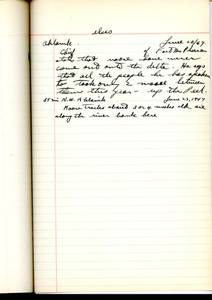 Aklavik June 20/47
Chief of Fort McPherson
states that moose have never
come out onto the delta. He says
that all the people he has spoken
to took only 2 moose between
them this year - up the Peel.
35 mi N.W. Aklavik June 23, 1947
Moose tracks about 3 or 4 weeks old are
along the river bank here